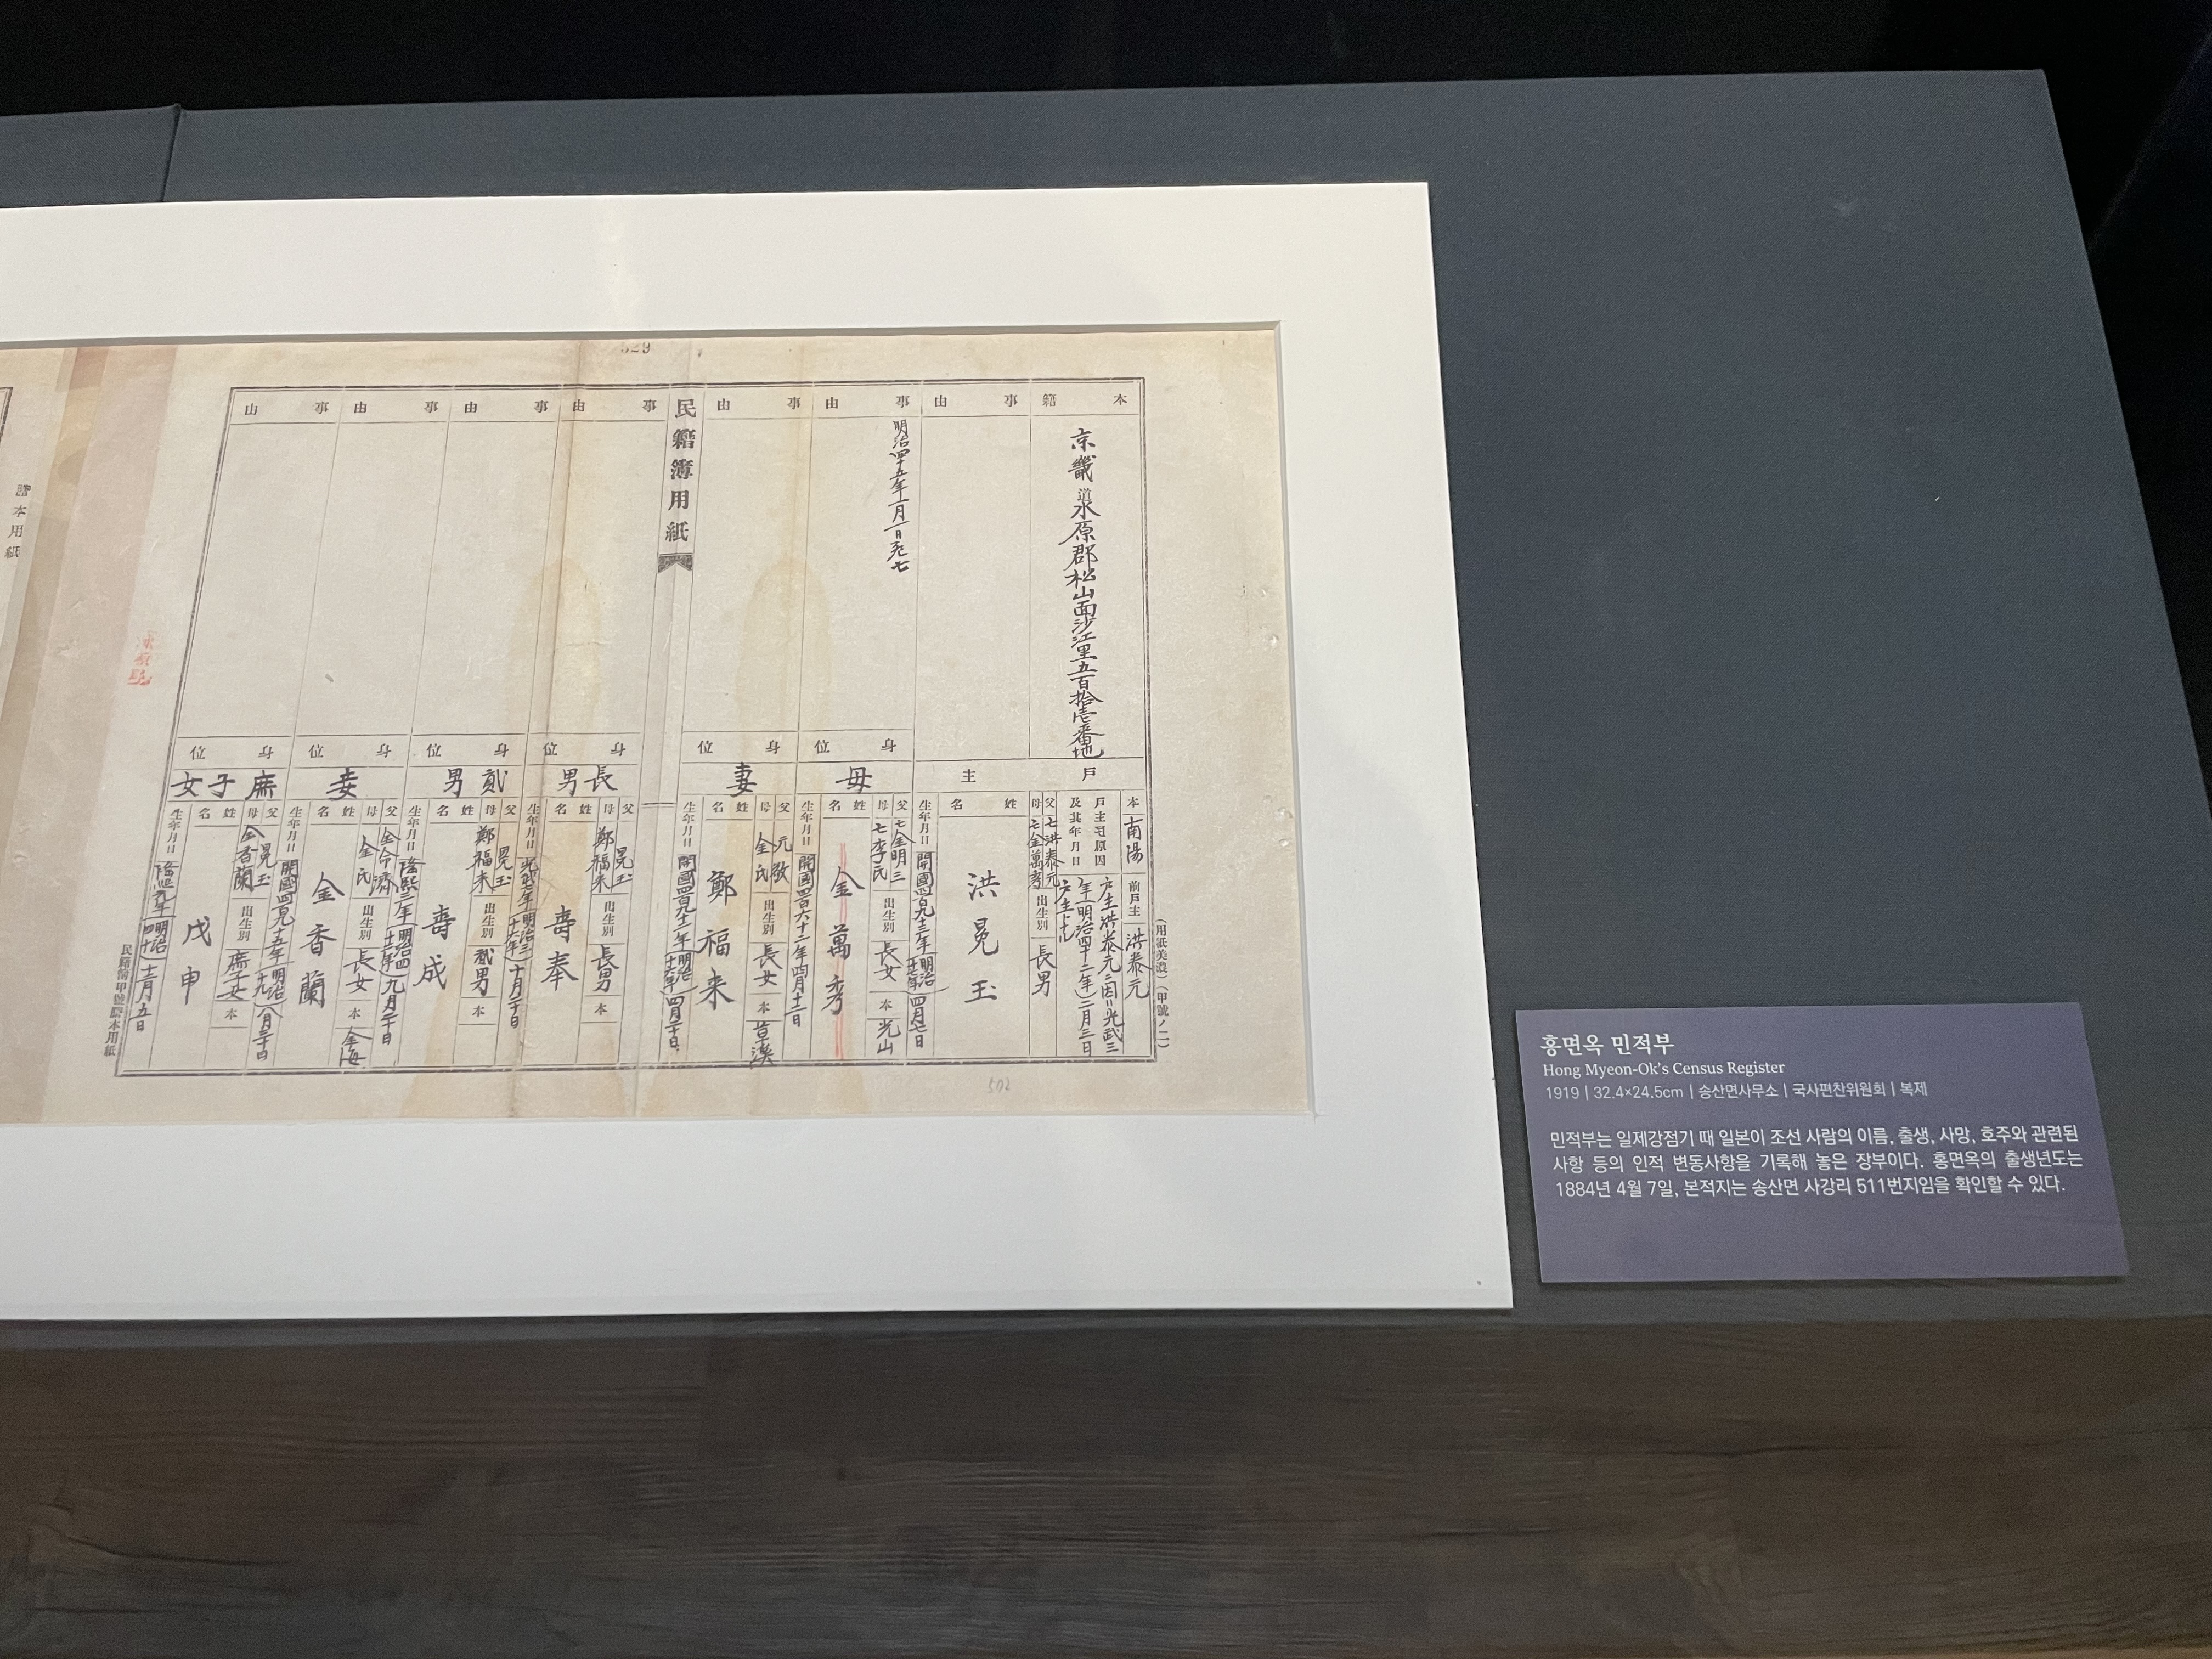 本籍
京畿道水原郡松山面沙江里五百拾壱番地
戶主
本
南陽
前戶主
洪泰元
戶主된原因
及其年月日
戶主洪泰元
光武三年(明治四十二年)二月三日
父
亡洪泰元
母
亡金萬秀
出生別
長男
姓名
洪冕玉
生年月日
開國四百九十三年(明治十七年)四月七日
事由
事由
明治四十五年一月一日死亡
身位
母
父
亡金明三
母
亡李氏
出生別
長女
本
光山
姓名
金萬秀
生年月日
開國四百六十二年四月十二日
事由
身位
妻
父
母
金氏
出生別
長女
本
草溪
姓名
鄭福来
生年月日
民籍簿用紙
事由
身位
長男
父
冕玉
母
鄭福来
出生別
長男
本
姓名
壽奉
生年月日
事由
身位
貳男
父
冕玉
母
鄭福来
出生別
貳男
本
姓名
壽成
生年月日
事由
身位
妾
父
母
金氏
出生別
長女
本
金海
姓名
金香蘭
生年月日
事由
身位
庶子女
父
冕玉
母
金香蘭
出生別
庶子女
本
姓名
戊申
生年月日
謄本用紙
(用紙美濃)(甲號ノ一)
502
홍면옥 민적부
Hong Myeon-Ok's Census Register
1919 | 32.4×24.5cm | 송산면사무소 | 국사편찬위원회 | 복제
민적부는 일제강점기 때 일본이 조선 사람의 이름, 출생, 사망, 호주와 관련된
사항 등의 인적 변동사항을 기록해 놓은 장부이다. 홍면옥의 출생년도는
1884년 4월 7일, 본적지는 송산면 사강리 511번지임을 확인할 수 있다.